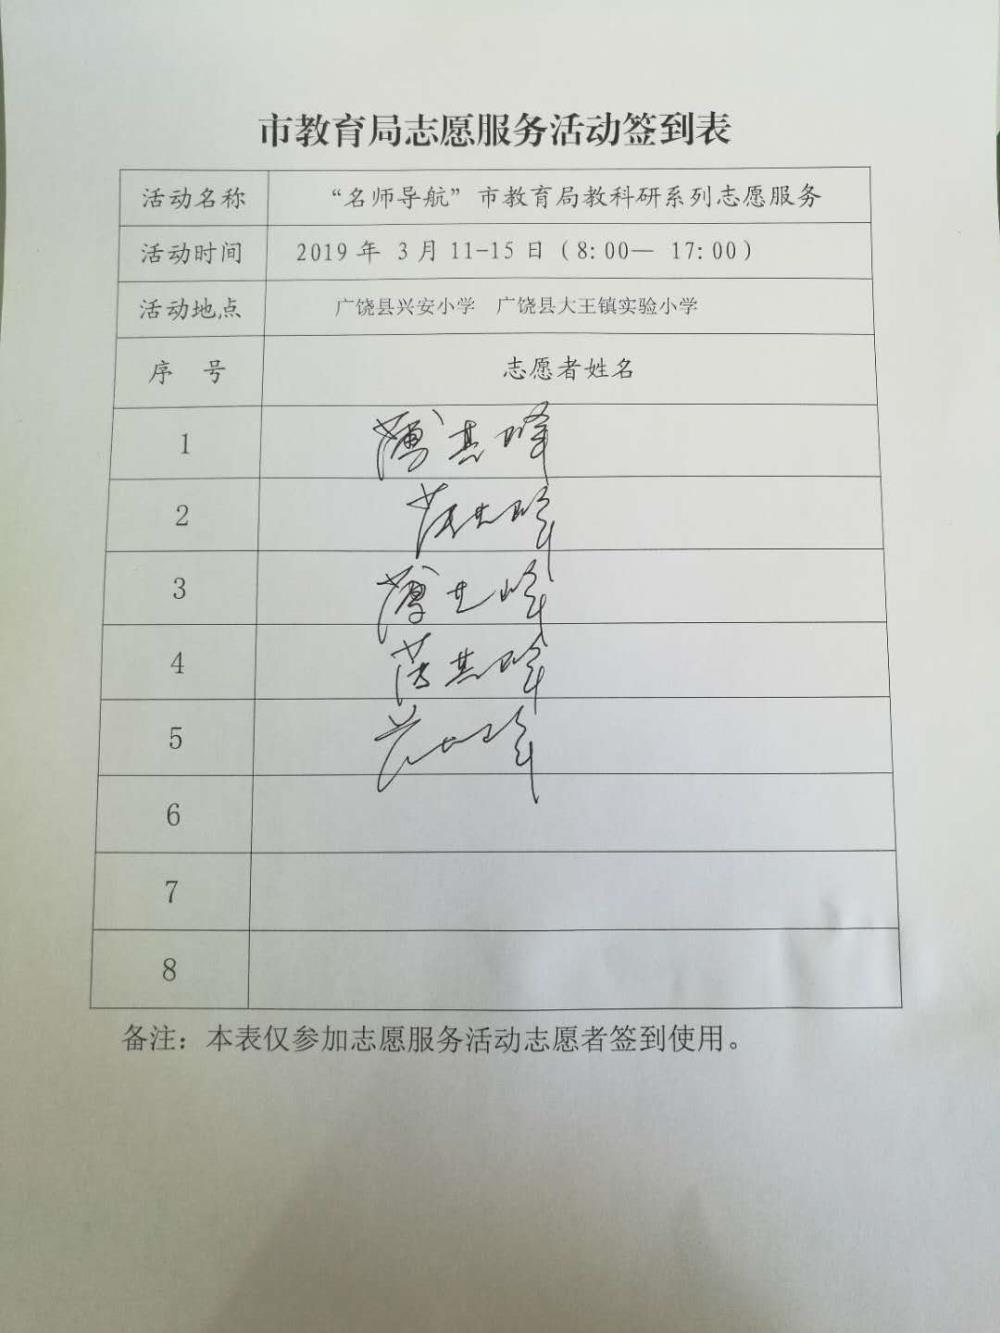 市教育局志愿服务活动签到表
活动名称 “名师导航”市教育局教科研系列志愿服务
活动时间 2019年 3月11-15日(8:00— 17:00)
活动地点 广饶县兴安小学 广饶县大王镇实验小学
序 号 志愿者姓名
1 薄其峰
2
3
4
5
6
7
8
备注：本表仅参加志愿服务活动志愿者签到使用。